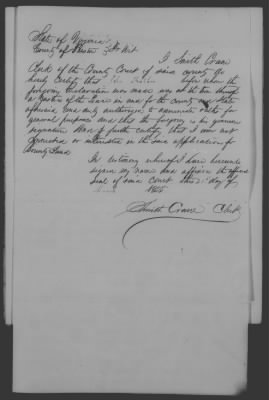 State of Virginia
County of Preston To Wit
I Smith Crane
Clerk of the County Court of said county do
hereby Certify that before whom the
foregoing declaration was made was at the time thereof
a Justice of the Peace in and for the county and State
aforesaid, and duly authorized to administer oaths for
general purposes and that the foregoing is his genuine
signature. And I further certify that I am not
interested in the same application for
Bounty Land
In testimony whereof I have hereunto
signed my name and affixed the official
Seal of said Court this 2d day of
Smith Crane Clerk